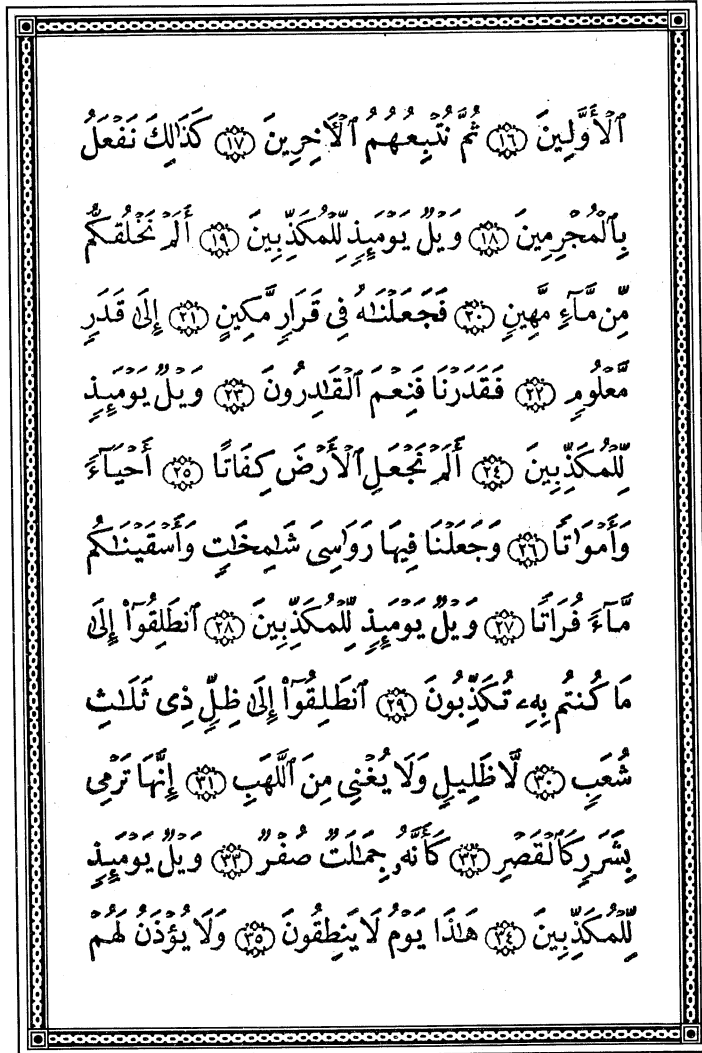 ٱلْأَوَّلِينَ ١٦ ثُمَّ نُتْبِعُهُمُ ٱلْأَخِرِينَ ١٧ كَذَٰلِكَ نَفْعَلُ
بِٱلْمُجْرِمِينَ ١٨ وَيْلٌ يَوْمَئِذٍ لِّلْمُكَذِّبِينَ ١٩ أَلَمْ نَخْلُقكُّم
مِّن مَّآءٍ مَّهِينٍ ٢٠ فَجَعَلْنَٰهُ فِى قَرَارٍ مَّكِينٍ ٢١ إِلَىٰ قَدَرٍ
مَّعْلُومٍ ٢٢ فَقَدَرْنَا فَنِعْمَ ٱلْقَٰدِرُونَ ٢٣ وَيْلٌ يَوْمَئِذٍ
لِّلْمُكَذِّبِينَ ٢٤ أَلَمْ نَجْعَلِ ٱلْأَرْضَ كِفَاتًا ٢٥ أَحْيَآءً
وَأَمْوَٰتًا ٢٦ وَجَعَلْنَا فِيهَا رَوَٰسِىَ شَٰمِخَٰتٍ وَأَسْقَيْنَٰكُم
مَّآءً فُرَاتًا ٢٧ وَيْلٌ يَوْمَئِذٍ لِّلْمُكَذِّبِينَ ٢٨ ٱنطَلِقُوٓا۟ إِلَىٰ
مَا كُنتُم بِهِۦ تُكَذِّبُونَ ٢٩ ٱنطَلِقُوٓا۟ إِلَىٰ ظِلٍّ ذِى ثَلَٰثِ
شُعَبٍ ٣٠ لَّا ظَلِيلٍ وَلَا يُغْنِى مِنَ ٱللَّهَبِ ٣١ إِنَّهَا تَرْمِى
بِشَرَرٍ كَٱلْقَصْرِ ٣٢ كَأَنَّهُۥ جِمَٰلَتٌ صُفْرٌ ٣٣ وَيْلٌ يَوْمَئِذٍ
لِّلْمُكَذِّبِينَ ٣٤ هَٰذَا يَوْمُ لَا يَنطِقُونَ ٣٥ وَلَا يُؤْذَنُ لَهُمْ